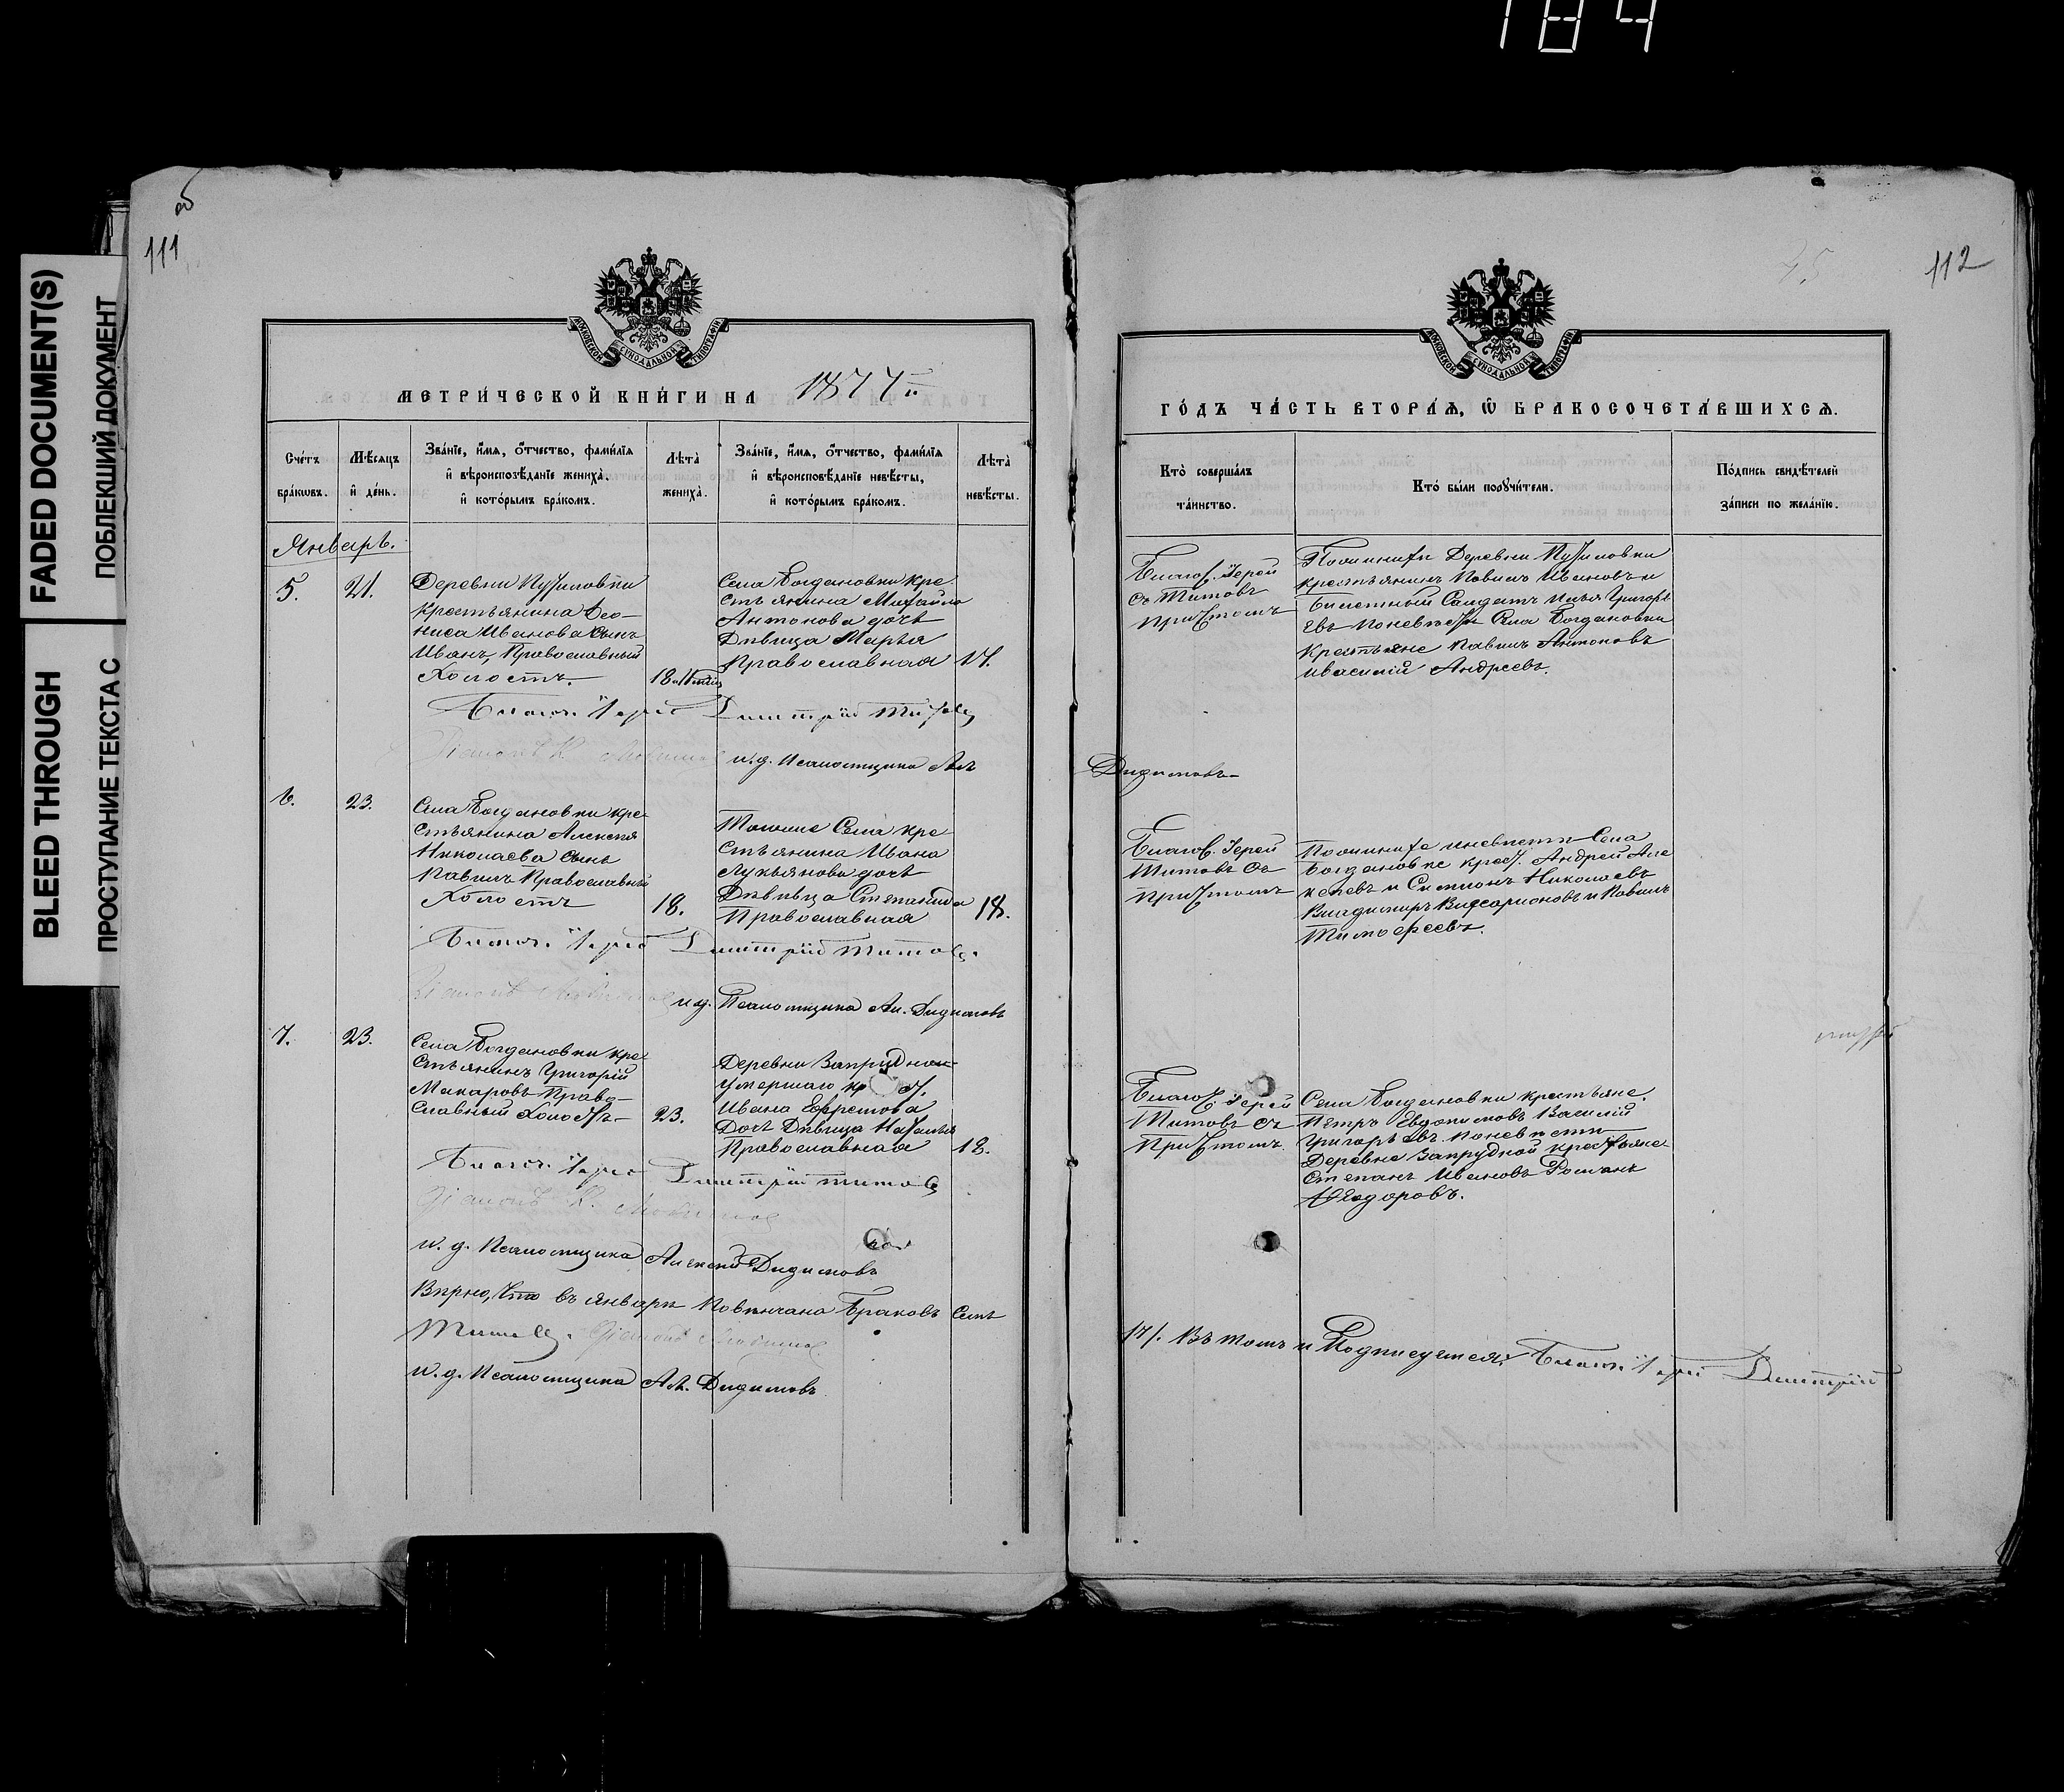 184
FADED DOCUMENT(S)
ПОБЛЕКШИЙ ДОКУМЕНТ
BLEED THROUGH
ПРОСТУПАНИЕ ТЕКСТА С
111
МОСКОВСКОЙ СѴНОДАЛЬНОЙ ТИПОГРАФІИ
МЕТРИ́ЧЕСКОЙ КНИ́ГИ НА 1877
Сче́тъ бра́кωвъ.
Мѣ́сяцъ и҆ де́нь.
Зва́нїе, и҆́мя, ѻ҆́тчество, фами́лїя
и҆ вѣроисповѣ́данїе жениха̀.
и҆ кото́рымъ бра́комъ.
Лѣта̀ жениха̀.
Зва́нїе, и҆́мя, ѻ҆́тчество, фами́лїя
и҆ вѣроисповѣ́данїе невѣ́сты,
и҆ кото́рымъ бра́комъ.
Лѣта̀ невѣ́сты.
Январь.
5.
21.
Деревни
крестьянина Део-
ниса Иванова сынъ
Иванъ, Православный
Холостъ.
18
Села Богдановки кре
стьянина Михайла
Антонова дочь
Дѣвица Марья
Православная
17.
Благоч. Іерей Димитрій Титовъ
и. д. Псаломщика Ал.
6.
23.
Села Богдановки кре
стьянина Алексѣя
Николаева сынъ
Павилъ Православный
Холостъ
18.
Тогоже Села кре
стьянина Ивана
Лукьянова дочь
Дѣвица Степанида
Православная
18.
Благоч. Іерей Димитрій Титовъ.
и. д. Псаломщика Ал. Дидимовъ
7.
23.
Села Богдановки кре
стьянинъ Григорій
Макаровъ Право-
славный Холостъ
23.
Деревни Запрудной
умершаго кр
Ивана Ефремова
Дочь Дѣвица Наталья
Православная
18.
Благоч. Іерей Димитрій Титовъ
и. д. Псаломщика Алексѣй Дидимовъ
Вѣрно, что въ январѣ Повѣнчано Браковъ семь
Титовъ.
и. д. Псаломщика Ал. Дидимовъ
112
МОСКОВСКОЙ СѴНОДАЛЬНОЙ ТИПОГРАФІИ
ГО́ДЪ ЧА́СТЬ ВТОРА́Я, Ѡ҆ БРАКОСОЧЕТА́ВШИХСЯ.
Кто̀ соверша́лъ та́инство.
Кто́ бы́ли порꙋчи́тели.
По́дпись свидѣ́телей
за́писи по жела́нїю.
Благоч. Іерей
Титовъ
причтомъ
По женихѣ Деревни
крестьянинъ Павилъ Ивановъ и
Билетный Солдатъ Илья Григорь
евъ по невѣстѣ Села Богдановки
крестьяне Павилъ Антоновъ
и Василій Андреевъ.
Дидимовъ
Благоч. Іерей
Титовъ съ
причтомъ
По женихѣ и невѣстѣ Села
Богдановки крест. Андрей Але
ксѣевъ и Симионъ Николаевъ
Владимиръ Виссарионовъ и Павилъ
Тимофеевъ.
Благоч. Іерей
Титовъ съ
причтомъ
Села Богдановки крестьяне.
Петръ Евдокимовъ Василій
Григорьевъ по невѣсти
Деревни Запрудной крестьяне
Степанъ Ивановъ Романъ
Ѳедоровъ.
/7/. Въ томъ и Подписуемся: Благоч. Іерей Димитрій